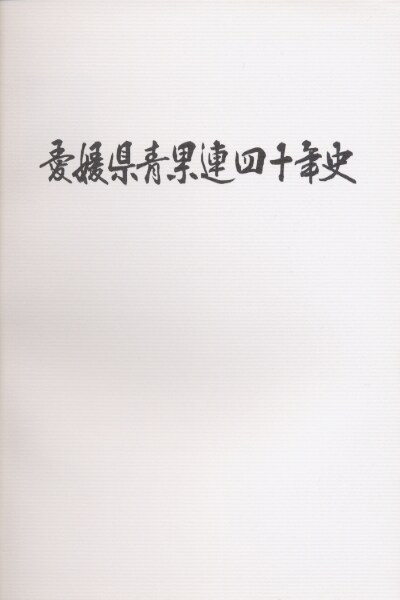 愛媛県青果連四十年史